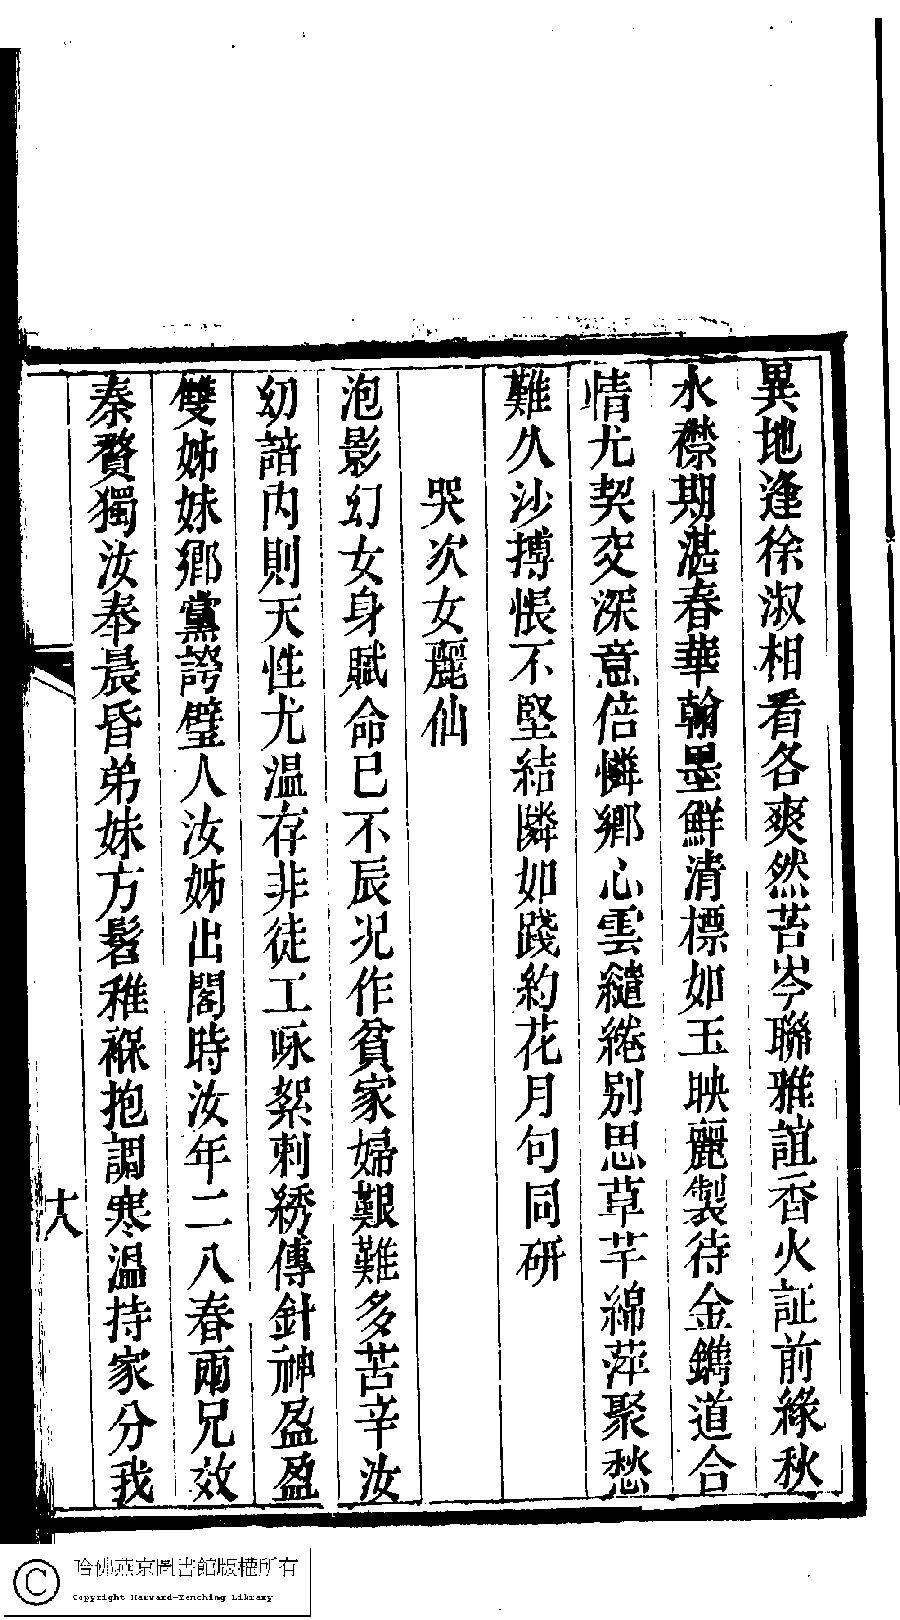 異地逢徐淑相看各爽然苔岑聯雅誼香火証前緣秋
水襟期湛春華翰墨鮮清標如玉映麗製待金鐫道合
情尤契交深意倍憐鄉心雲繾綣別思草芊綿萍聚愁
難久沙摶悵不堅結隣如踐約花月句同研
哭次女麗仙
泡影幻女身賦命已不辰况作貧家婦艱難多苦辛汝
幼諳內則天性尤溫存非徒工咏絮刺綉傳針神盈盈
雙姊妹鄉黨誇璧人汝姊出閣時汝年二八春兩兄效
秦贅獨汝奉晨昏弟妹方髫稚褓抱調寒溫持家分我
十八
哈佛燕京圖書館版權所有
Copyright Harvard-Yenching Library